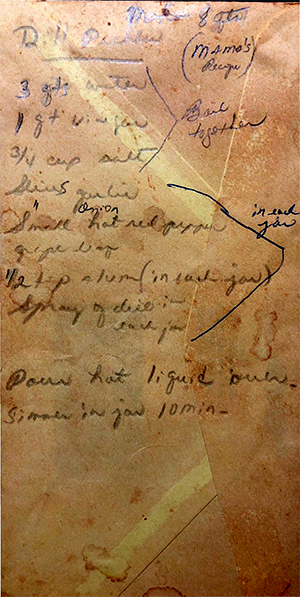 Makes 8 qts
Dill Pickles
(Mama's
Recipe)
3 qts water
1 qt vinegar
3/4 cup salt
Boil
together
Slices garlic
" onion
Small hot red pepper
grape leaf
1/2 tsp alum (in each jar)
Spray of dill in
each jar
in each
jar
Pour hot liquid over -
Simmer in jar 10 min -